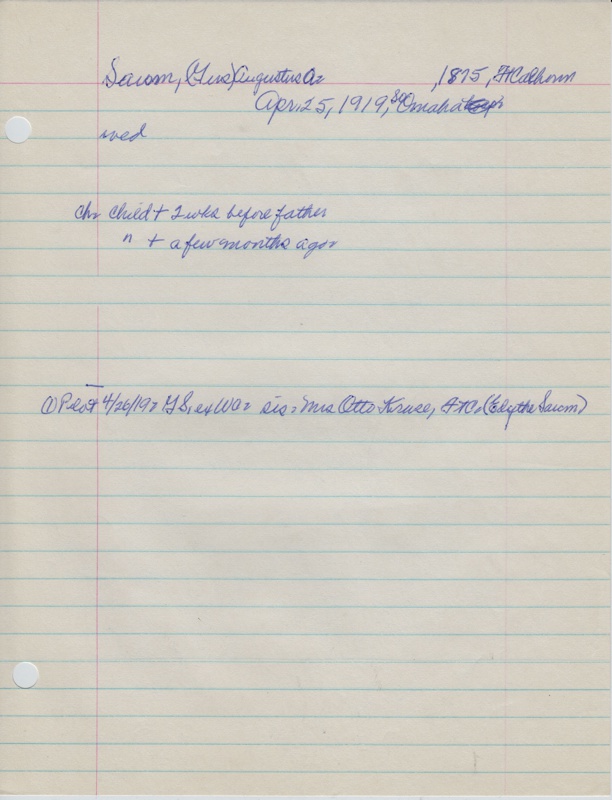 Sawm, (Gus) Augustus A. ,1875, Ft Calhoun
Apr. 25, 1919, So Omaha
wed
ch. child + 2 wks before father
" + a few months ago.
① Pilot 4/26/19: sis: Mrs Otto Kruse, Ft C. (Edythe Sawm)